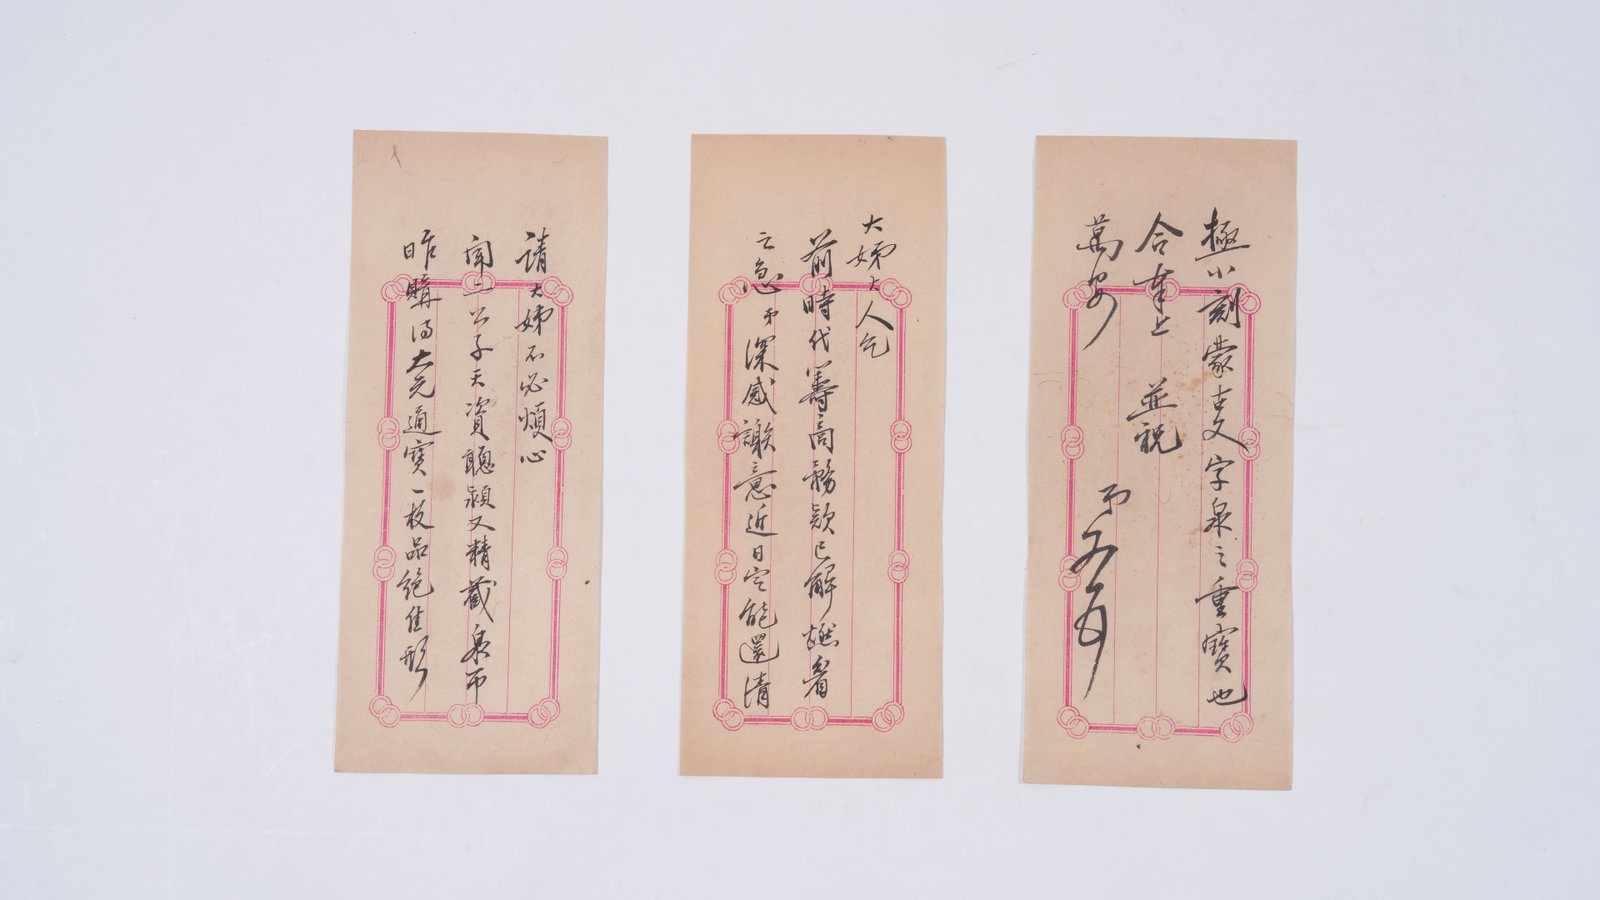 大姊大人
前時代籌高款已解燃眉
之急弟深感謝意近日定能還清
請大姊不必煩心
聞二公子天資聰穎又精藏泉币
昨購得大元通寶一枚品絕佳形
極小刻蒙古文字泉之重寶也
合奉上 並祝
萬安
弟